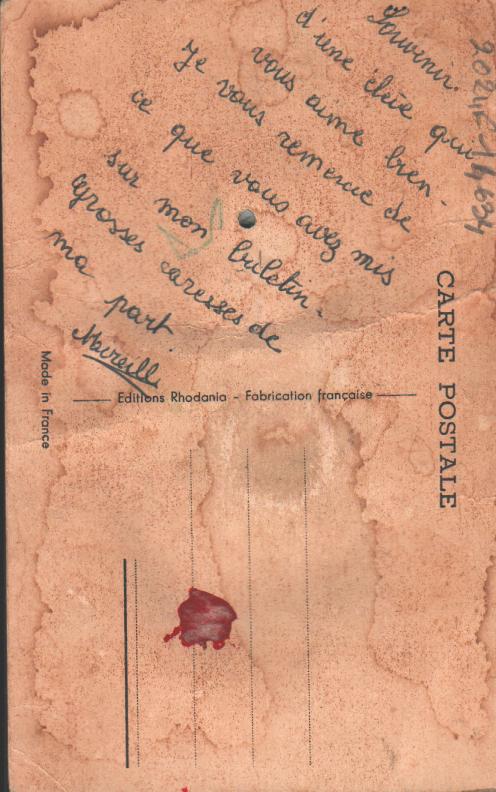 Souvenir.
d'une élève qui
vous aime bien.
Je vous remercie de
ce que vous avez mis
sur mon buletin.
grosses caresses de
ma part.
Mireille
CARTE POSTALE
Editions Rhodania - Fabrication française
Made in France